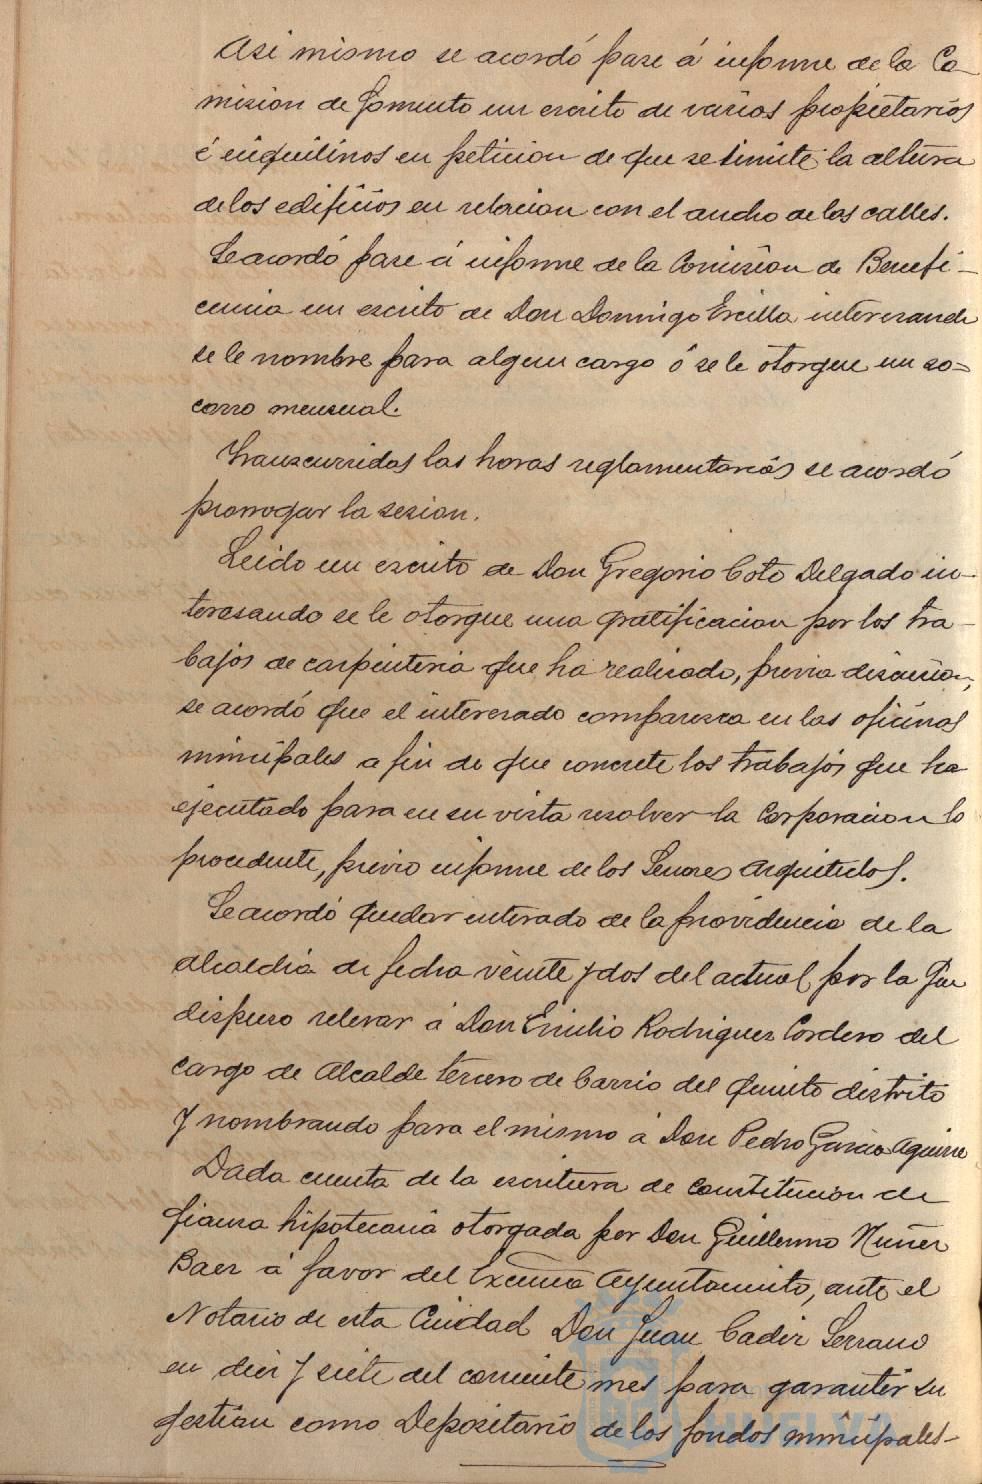 Asi mismo se acordó pase á informe de la Co-
mision de Fomento un escrito de varios propietarios
é inquilinos en peticion de que se limite la altura
de los edificios en relacion con el ancho de las calles.
Se acordó pase á informe de la Comision de Benefi-
cencia un escrito de Don Domingo Ercilla interesando
se le nombre para algun cargo ó se le otorgue un so=
corro mensual.
Transcurridas las horas reglamentarias se acordó
prorrogar la sesion.
Leido un escrito de Don Gregorio Coto Delgado in-
teresando se le otorgue una gratificacion por los tra-
bajos de carpinteria que ha realizado, previa discusion,
se acordó que el interesado comparezca en las oficinas
municipales a fin de que concrete los trabajos que ha
ejecutado para en su vista resolver la Corporacion lo
procedente, previo informe de los Senores Arquitectos.
Se acordó quedar enterado de la providencia de la
alcaldia de fecha veinte y dos del actual por la que
dispuso relevar á Don Emilio Rodriguez Cordero del
cargo de Alcalde tercero de barrio del quinto distrito
y nombrando para el mismo á Don Pedro Garcia Aguirre
Dada cuenta de la escritura de constitucion de
fianza hipotecaria otorgada por Don Guillermo Nuñez
Baez á favor del Excmo Ayuntamiento, ante el
Notario de esta Ciudad Don Juan Cadiz Serrano
en diez y siete del corriente mes para garantir su
gestion como Depositario de los fondos municipales-
HUELVA